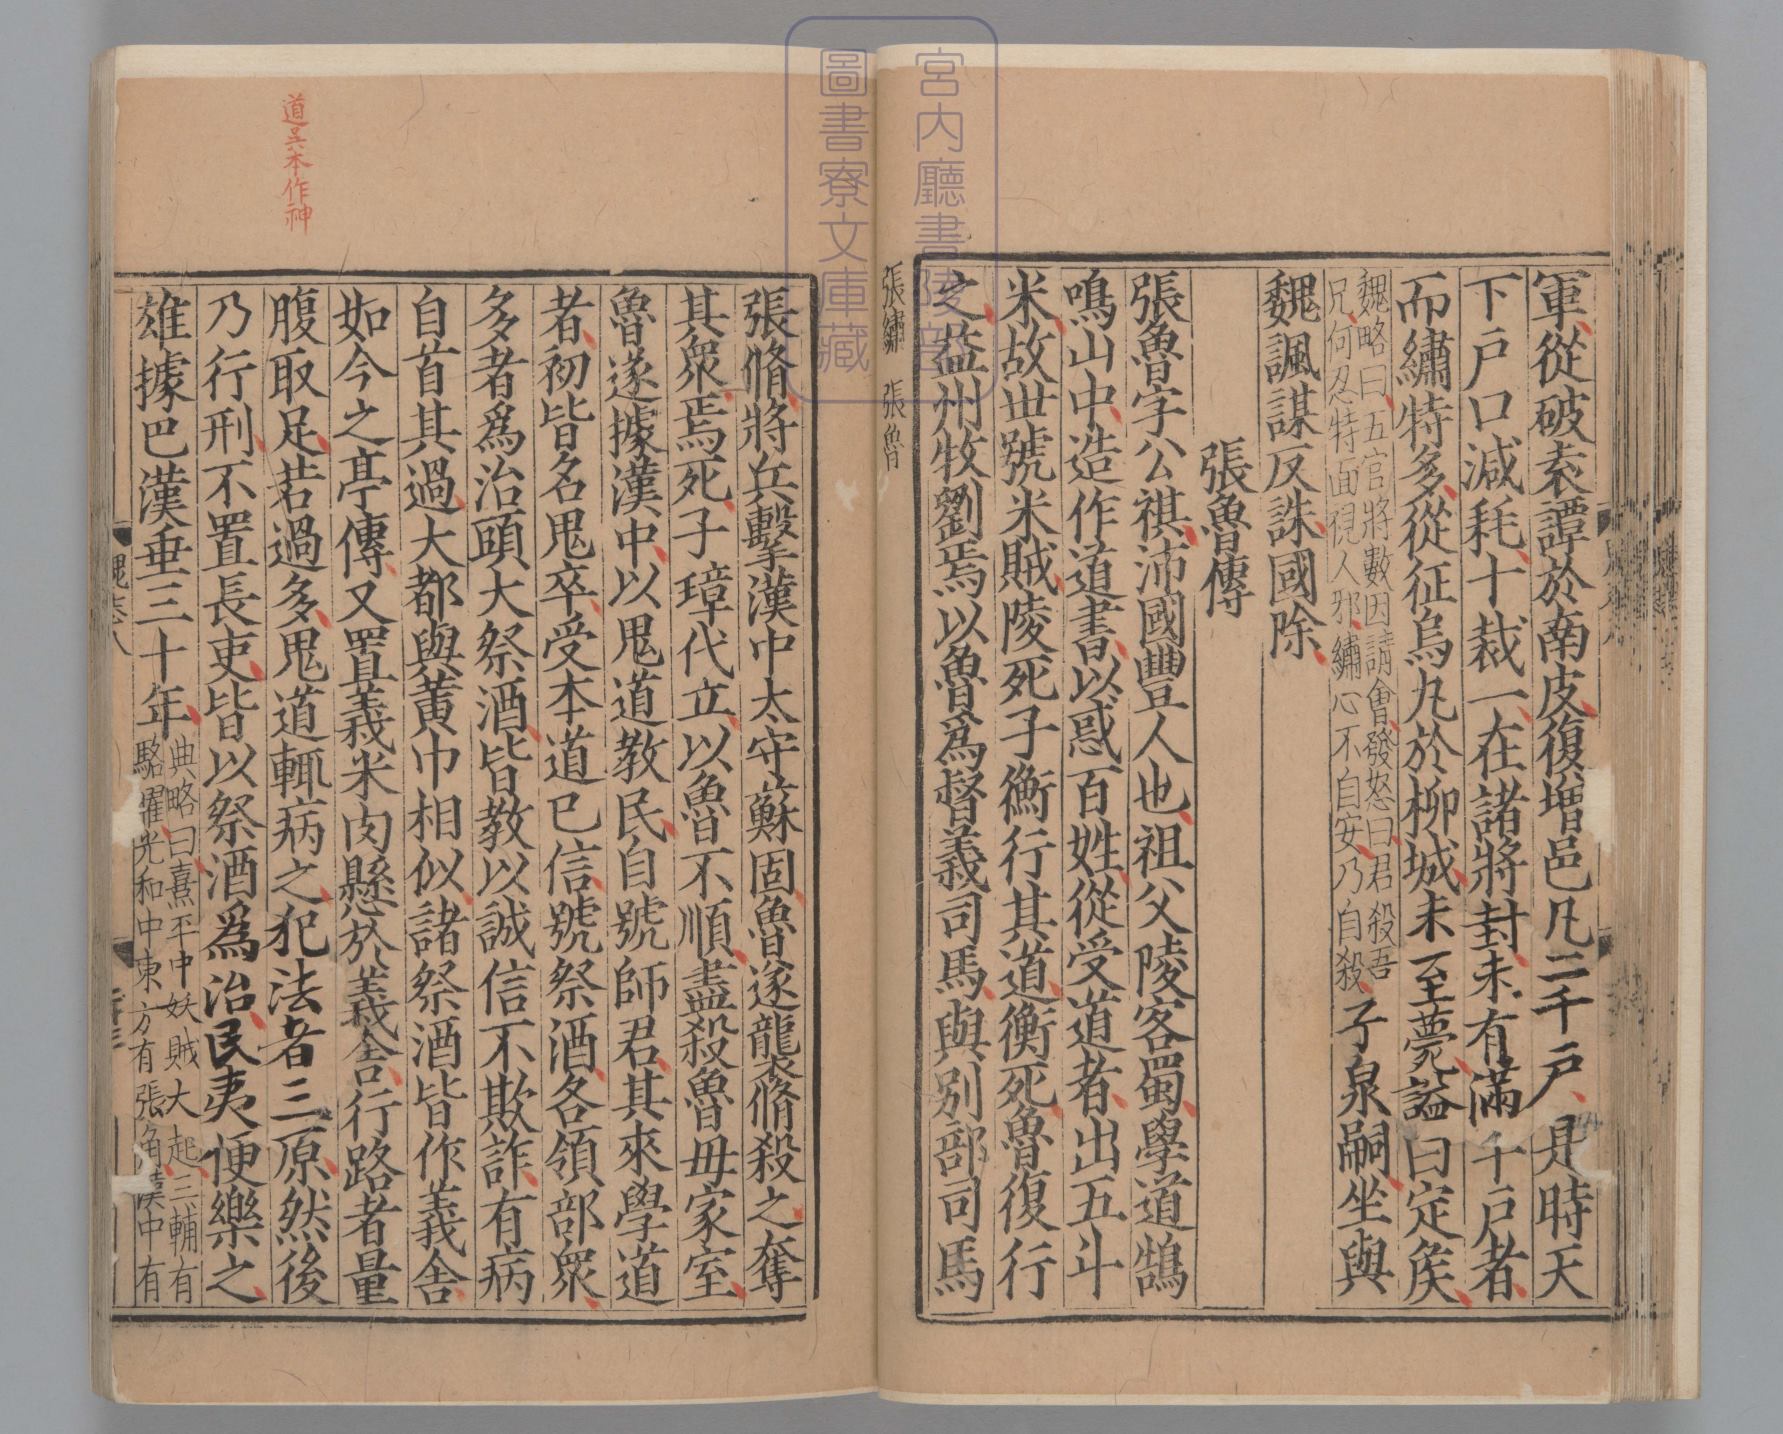 軍從破袁譚於南皮復增邑凡二千戶是時天
下戶口減耗十裁一在諸將封未有滿千戶者
而繡特多從征烏丸於柳城未至薨諡曰定矦
魏略曰五官將數因請會發怒曰君殺吾
兄何忍特面視人邪繡心不自安乃自殺子泉嗣坐與
魏諷謀反誅國除
張魯傳
張魯字公祺沛國豐人也祖父陵客蜀學道鵠
鳴山中造作道書以惑百姓從受道者出五斗
米故世號米賊陵死子衡行其道衡死魯復行
之益州牧劉焉以魯爲督義司馬與別部司馬
張繡 張魯
張脩將兵擊漢中太守蘇固魯遂襲脩殺之奪
其衆焉死子璋代立以魯不順盡殺魯母家室
魯遂據漢中以鬼道教民自號師君其來學道
者初皆名鬼卒受本道已信號祭酒各領部衆
多者爲治頭大祭酒皆教以誠信不欺詐有病
自首其過大都與黃巾相似諸祭酒皆作義舍
如今之亭傳又置義米肉懸於義舍行路者量
腹取足若過多鬼道輒病之犯法者三原然後
乃行刑不置長吏皆以祭酒爲治民夷便樂之
雄據巴漢垂三十年典略曰熹平中妖賊大起三輔有
駱曜光和中東方有張角漢中有
道吳本作神
魏志八
宮內廳書陵部
圖書寮文庫藏